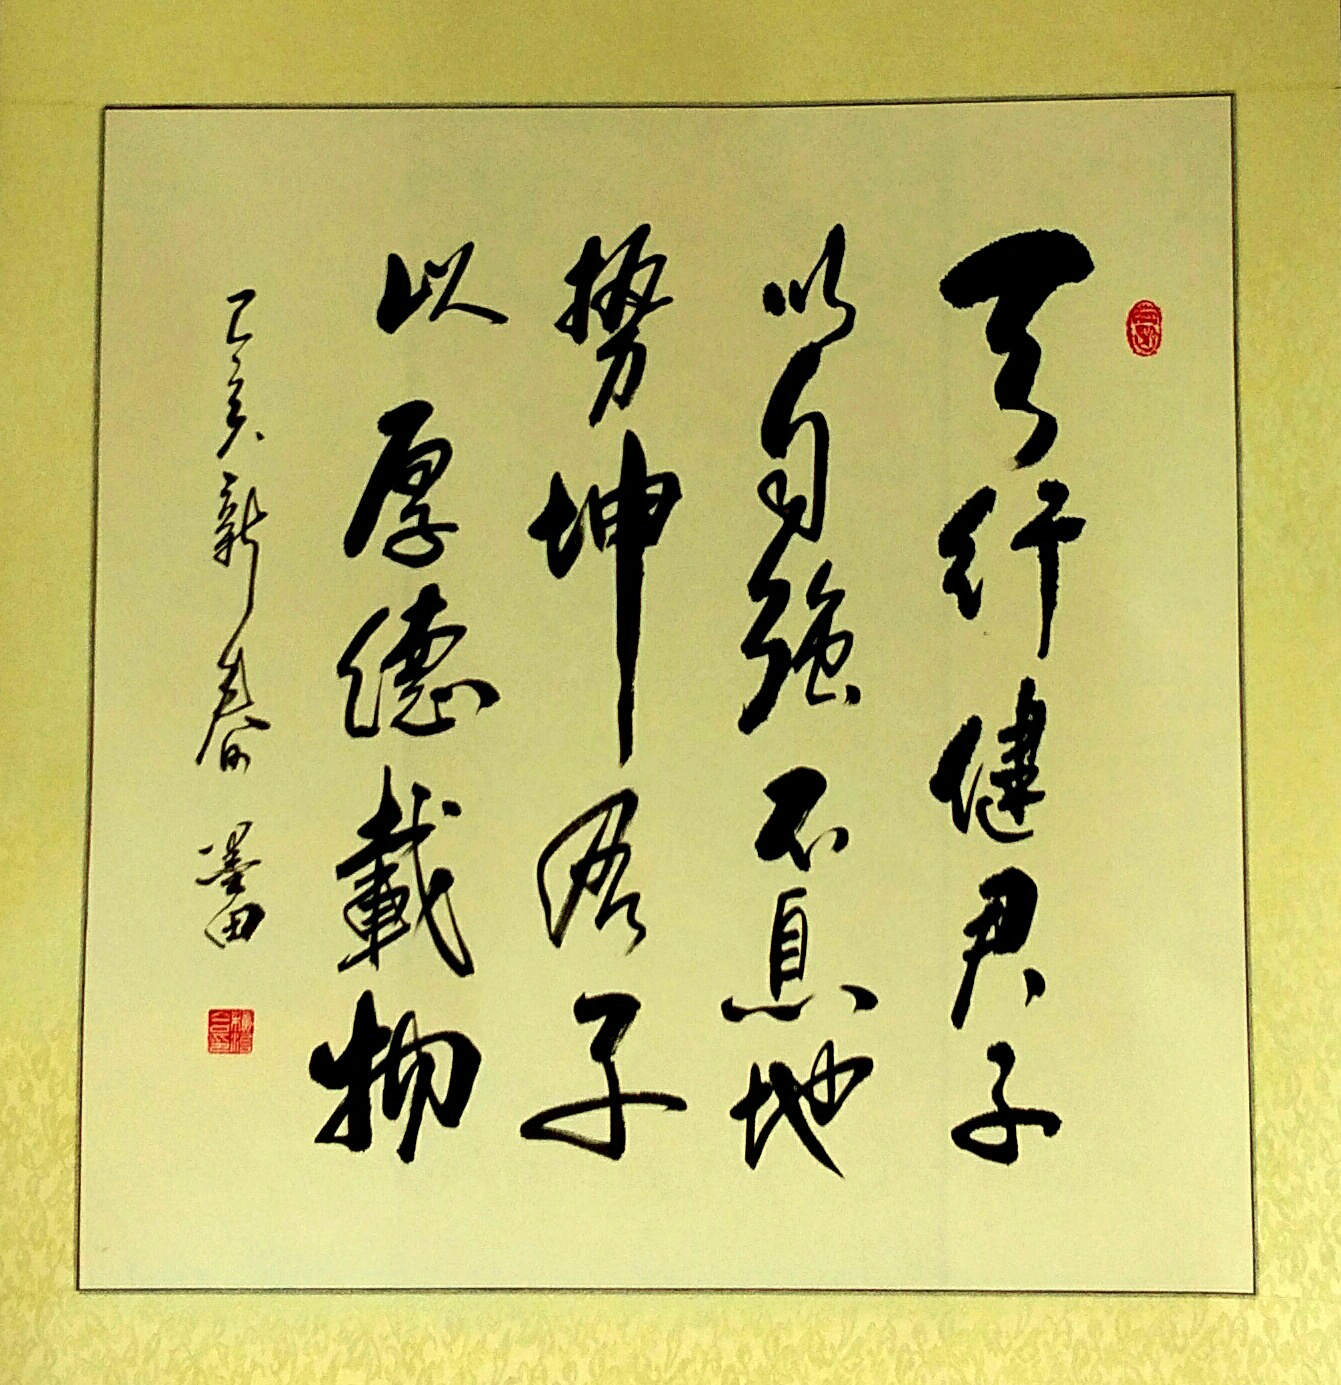 天行健君子
以自强不息地
势坤君子
以厚德载物
己亥新春 墨田